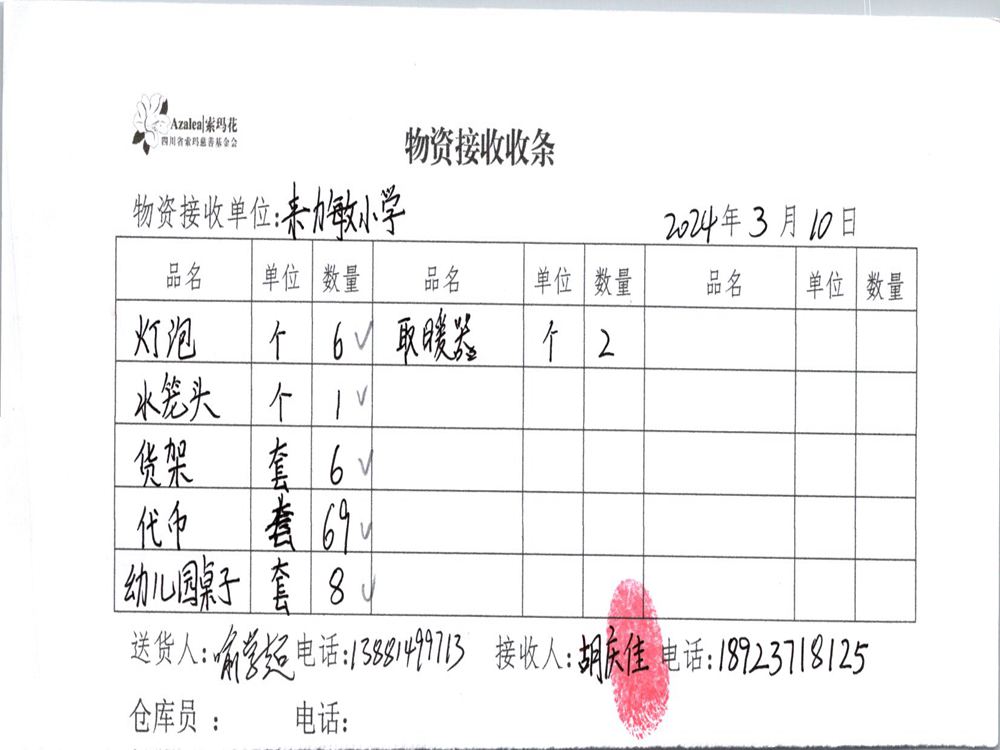 Azalea|索玛花
四川省索玛慈善基金会
物资接收收条
物资接收单位:来力敏小学 2024年3月10日
品名 单位 数量 品名 单位 数量 品名 单位 数量
灯泡 个 6✓ 取暖器 个 2
水笼头 个 1✓
货架 套 6✓
代币 套 69✓
幼儿园桌子 套 8✓
送货人:喻学超 电话:13881499713 接收人:胡庆佳 电话:18923718125
仓库员: 电话: